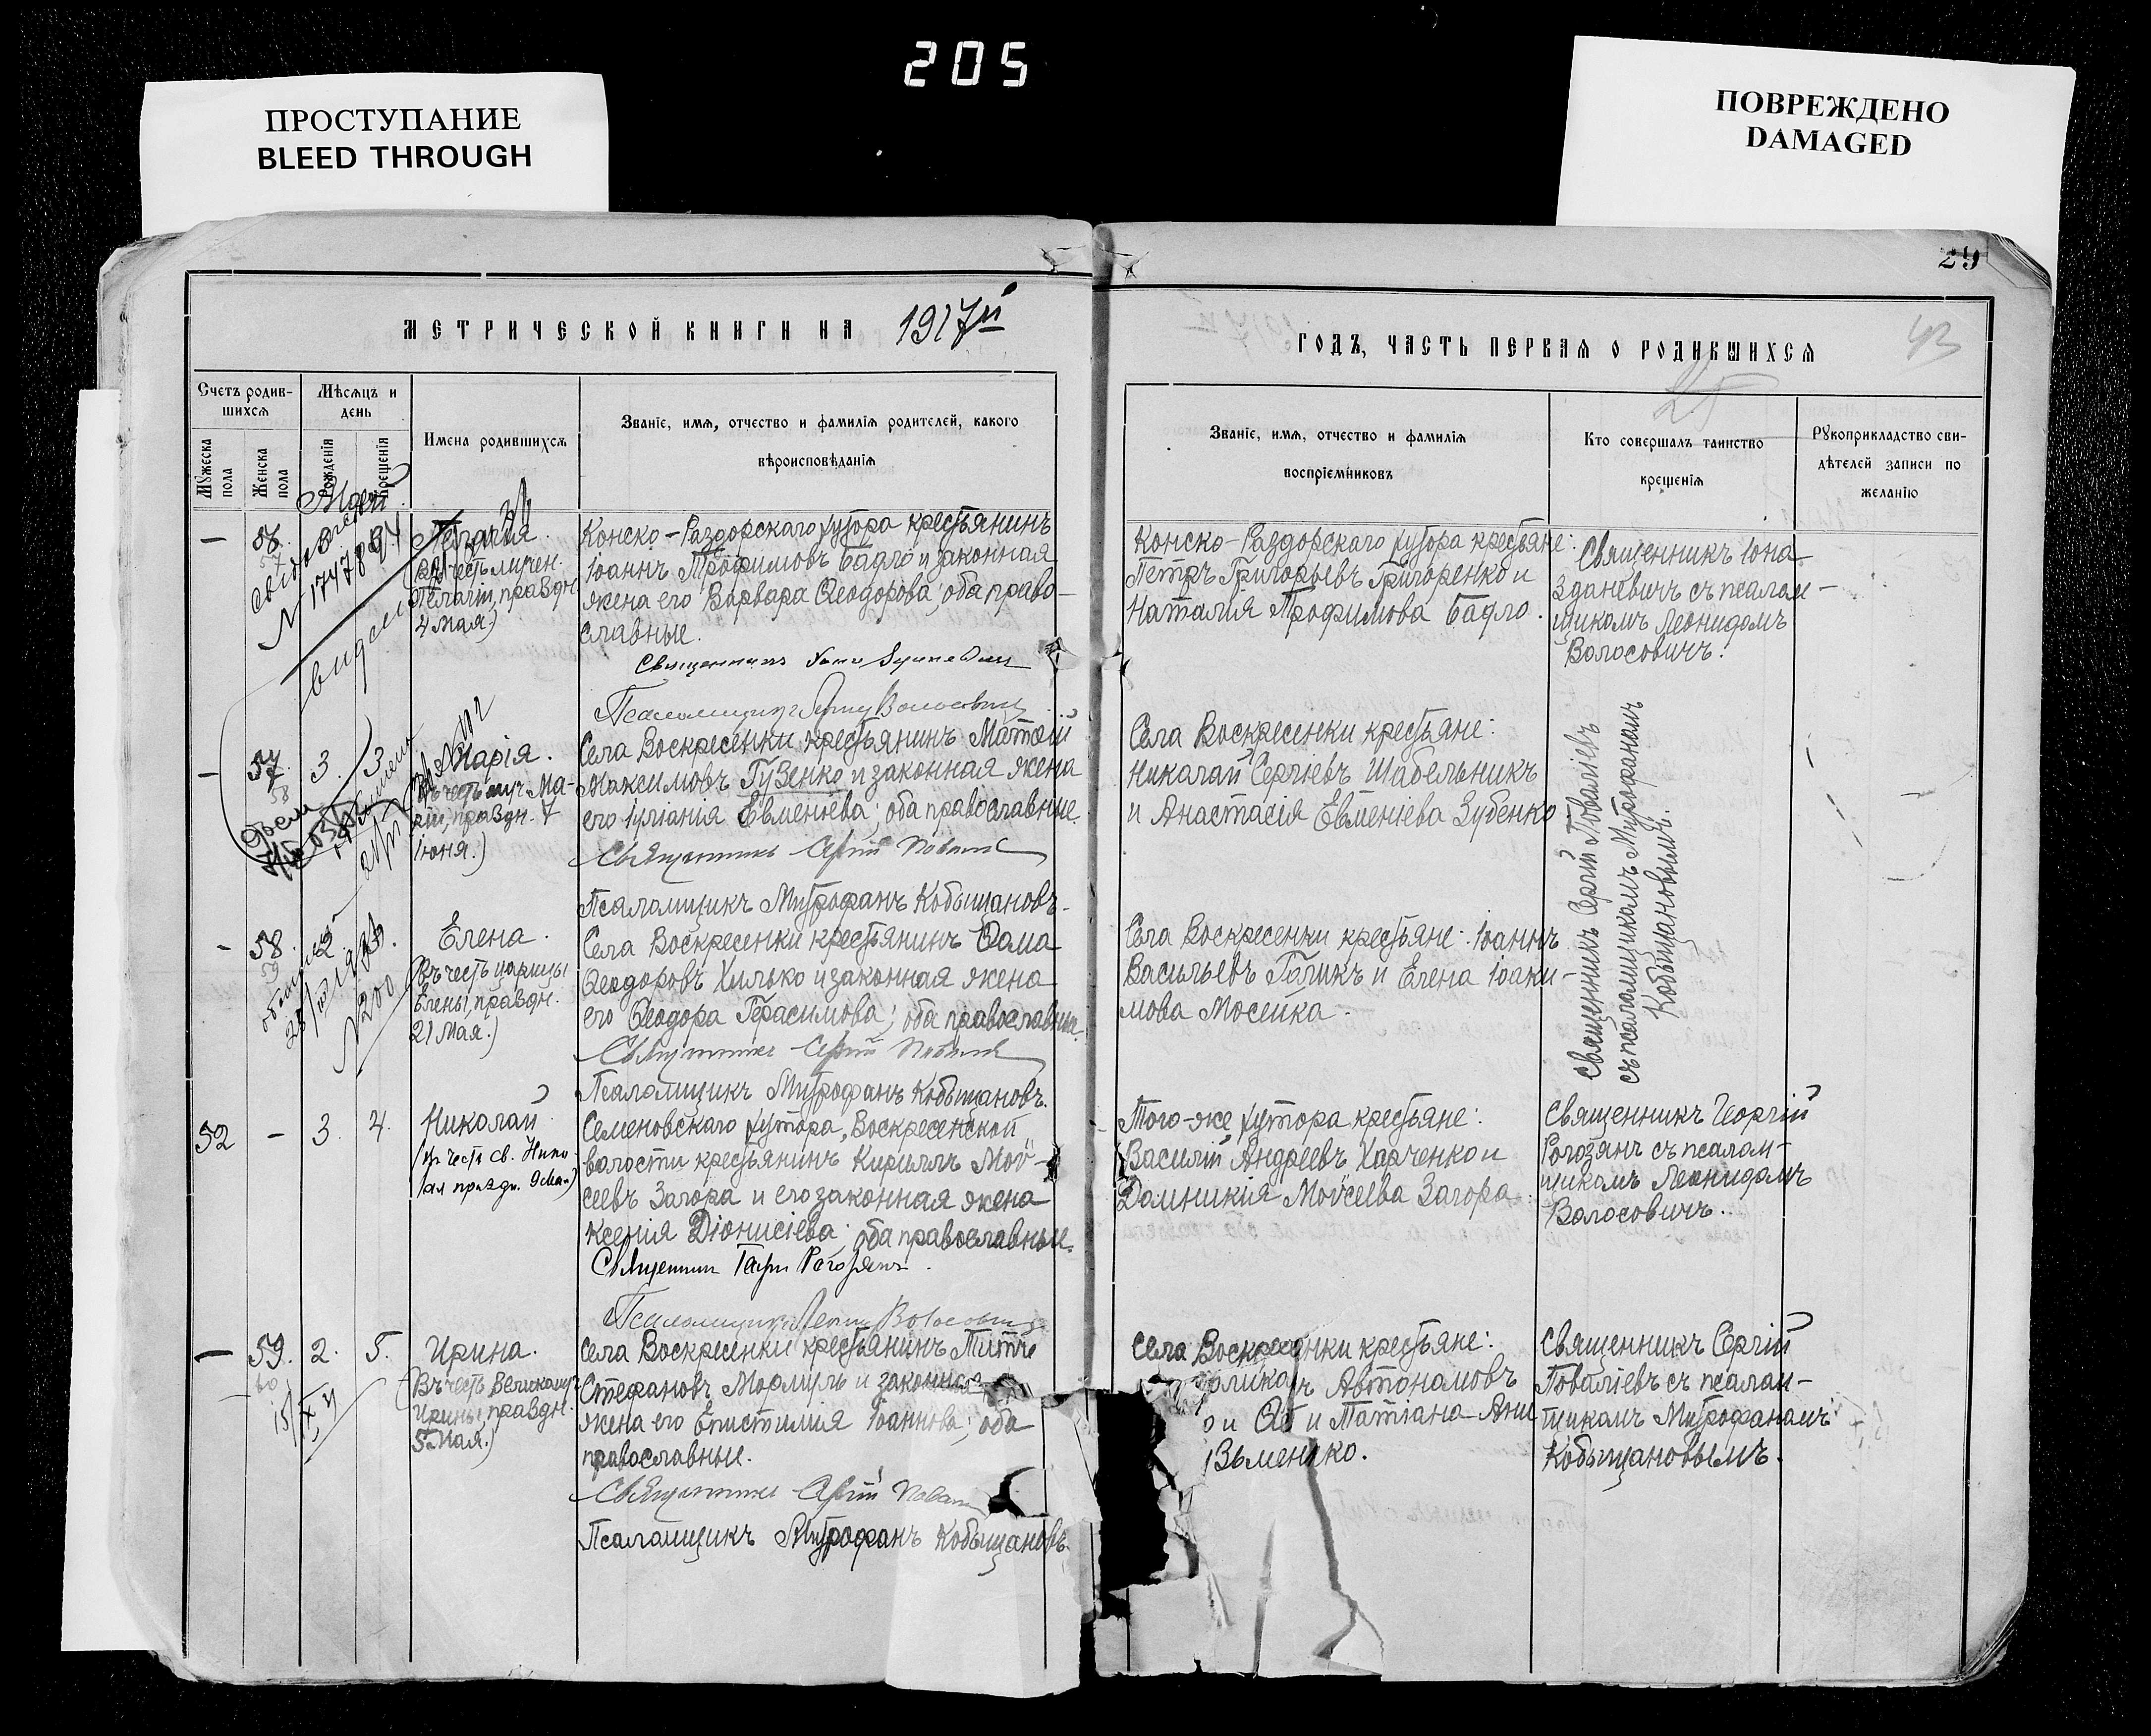 205
ПРОСТУПАНИЕ
BLEED THROUGH
ПОВРЕЖДЕНО
DAMAGED
29
МЕТРИЧЕСКОЙ КНИГИ НА 1917й
ГОДЪ, ЧАСТЬ ПЕРВАЯ О РОДИВШИХСЯ
43
Счетъ родив-
шихся
Мужеска
пола
Женска
пола
Мѣсяцъ и
день
Рожденія
Крещенія
Имена родившихся
Званіе, имя, отчество и фамилія родителей, какого
вѣроисповѣданія
Званіе, имя, отчество и фамилія
воспріемниковъ
Кто совершалъ таинство
крещенія
Рукоприкладство сви-
дѣтелей записи по
желанію
Мая
— 56. 3
Пелагія.
Пелагіи, праздн.
4 Мая)
Конско-Раздорскаго хутора крестьянинъ
Іоаннъ Трофимовъ Бадло и законная
жена его Варвара Ѳеодорова; оба право-
славные.
Священникъ
Псаломщикъ Волосовичъ
Конско-Раздорскаго хутора крестьяне:
Петръ Григорьевъ Григоренко и
Наталія Трофимова Бадло.
Священникъ Іона
Здановичъ съ псалом-
щикомъ Леонидомъ
Волосовичъ.
— 57 3. 3
Марія.
Въ честь муч. Ма-
ріи, праздн. 7
Іюня.)
Села Воскресенки крестьянинъ Матѳей
Максимовъ Гузенко и законная жена
его Іуліанія Евменіева; оба православные.
Священникъ Сергій
Псаломщикъ Митрофанъ Кобыщановъ.
Села Воскресенки крестьяне:
Николай Сергіевъ Шабельникъ
и Анастасія Евменіева Зубенко
Священникъ Сергій Поваліевъ
съ псаломщикомъ Митрофаномъ
Кобыщановымъ.
- 58. 2 3.
Елена.
(Въ честь царицы
Елены, праздн.
21 Мая.)
Села Воскресенки крестьянинъ Ѳома
Ѳеодоровъ Хилько и законная жена
его Ѳеодора Герасимова; оба православные.
Священникъ Сергій
Псаломщикъ Митрофанъ Кобыщановъ.
Села Воскресенки крестьяне: Іоаннъ
Васильевъ Голикъ и Елена Іоаки-
мова Мосейка.
52 - 3. 4.
Николай.
(въ честь св. Нико-
лая праздн. 9 Мая)
Семеновскаго хутора, Воскресенской
волости крестьянинъ Кириллъ Мой-
сеевъ Загора и его законная жена
Ксенія Діонисіева; оба православные.
Священникъ Рогозянъ.
Псаломщикъ Волосовичъ
Того-же хутора крестьяне:
Василій Андреевъ Харченко и
Домникія Мойсеева Загора.
Священникъ Георгій
Рогозянъ съ псалом-
щикомъ Леонидомъ
Волосовичъ.
— 59. 2. 5.
Ирина.
(Въ честь великомуч.
Ирины, праздн.
5 Мая.)
Села Воскресенки крестьянинъ Титъ
Стефановъ Мормуль и законная
жена его Епистимія Іоаннова; оба
православные.
Священникъ Сергій
Псаломщикъ Митрофанъ Кобыщановъ.
Села Воскресенки крестьяне:
Автономовъ
и Татіана
Священникъ Сергій
Поваліевъ съ псалом-
щикомъ Митрофаномъ
Кобыщановымъ.